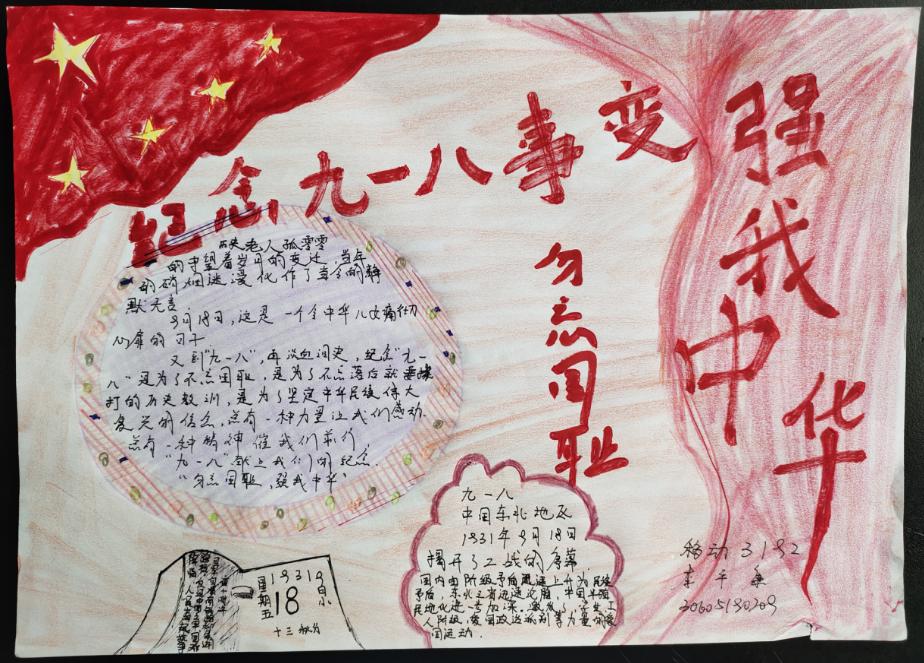 纪念九一八事变
勿忘国耻
强我中华
老人孤零零
的守望着岁月的变迁，当年
的硝烟迷漫化作了当今的静
默无言。
9月18日，这是一个令中华儿女痛彻
心扉的日子
又到"九一八"，再谈血泪史，纪念"九一
八"是为了不忘国耻，是为了不忘落后就要挨
打的历史教训，是为了坚定中华民族伟大
复兴的信念，总有一种力量让我们感动，
总有一种精神催我们前行，
"九一八"献上我们的纪念。
"勿忘国耻，强我中华"
九一八
中国东北地区
1931年9月18日
揭开了二战的序幕
国内由阶级矛盾迅速上升为民族
矛盾，东北三省迅速沦陷，中国半殖
民地化进一步加深，激发了学生、工
人阶级、爱国政治派别等力量的救
国运动.
1931 9
星期五
18
移动3192
20605190209